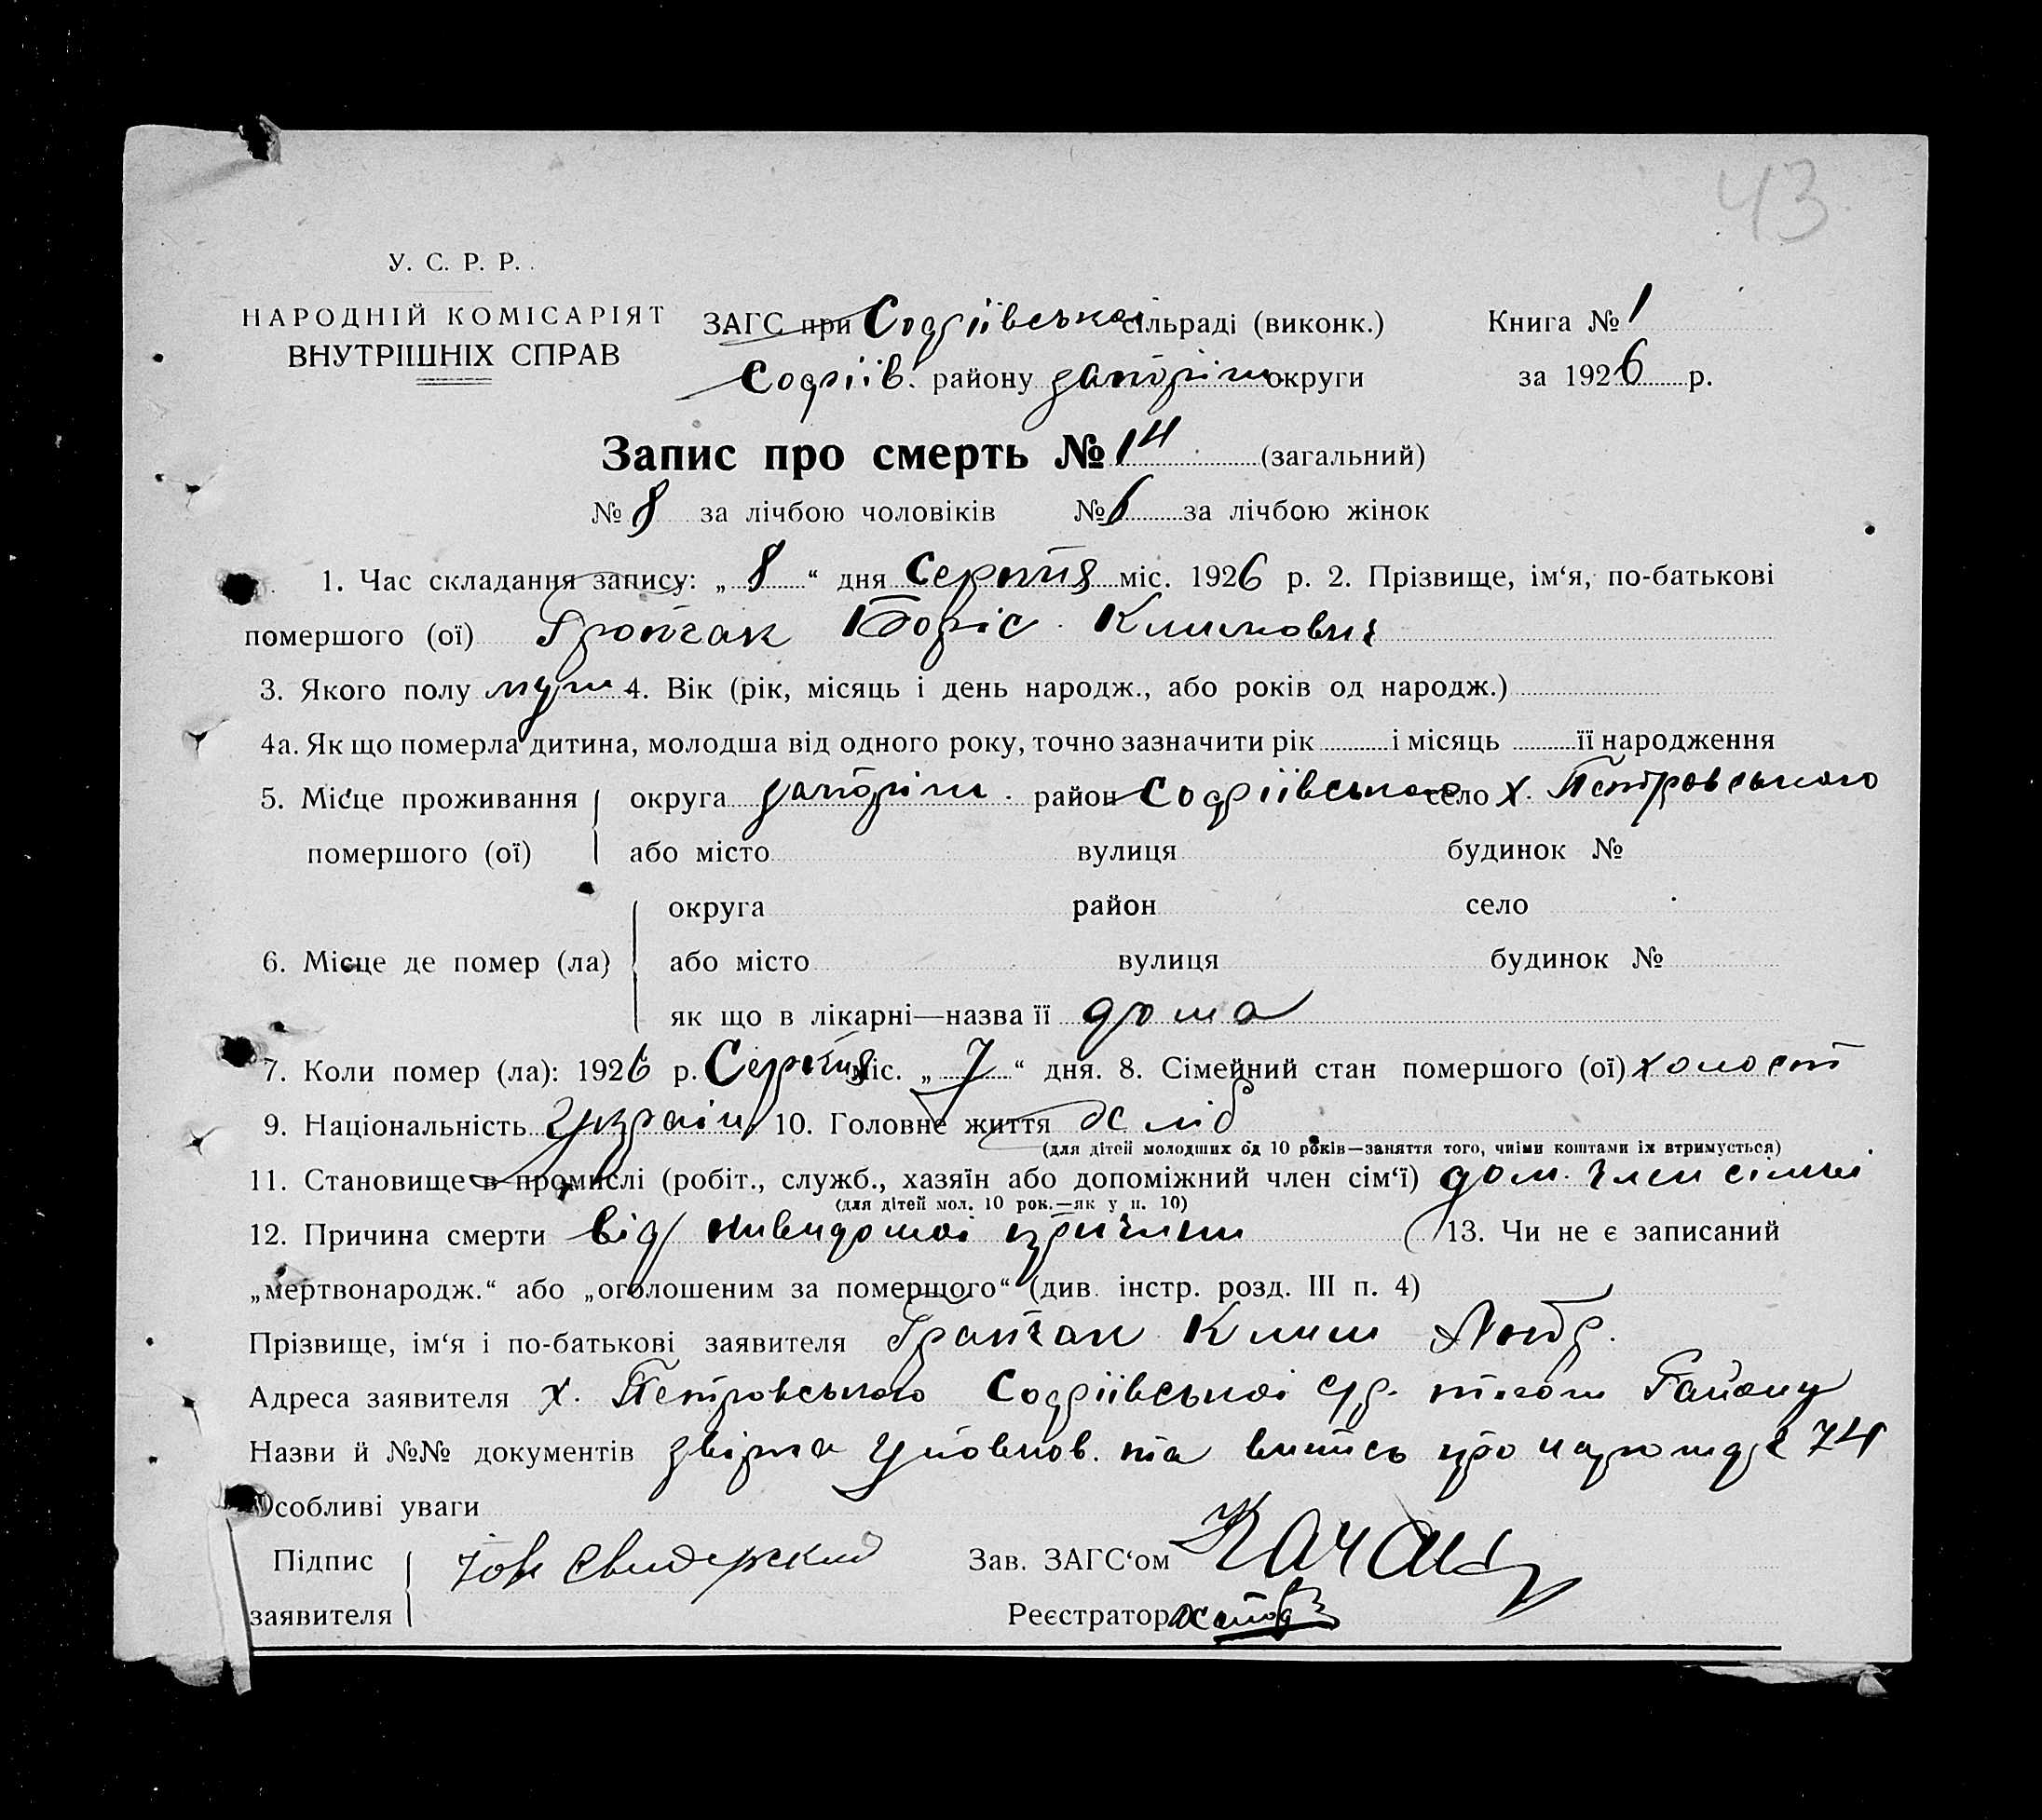 43
У. С. Р. Р.
НАРОДНІЙ КОМІСАРІЯТ
ВНУТРІШНІХ СПРАВ
ЗАГС при Софіївській сільраді (виконк.)
Книга № 1
Софіїв. району Запоріж. округи
за 1926 р.
Запис про смерть № 14 (загальний)
№ 8 за лічбою чоловіків № 6 за лічбою жінок
1. Час складання запису: „ 8 “ дня Серпня міс. 1926 р. 2. Прізвище, ім‘я, по-батькові
помершого (ої) Борис Климович
3. Якого полу муж 4. Вік (рік, місяць і день народж., або років од народж.)
4а. Як що померла дитина, молодша від одного року, точно зазначити рік і місяць її народження
5. Місце проживання округа Запоріж. район Софіївського село х. Петровського
помершого (ої) або місто вулиця будинок №
округа район село
6. Місце де помер (ла) або місто вулиця будинок №
як що в лікарні—назва її дома
7. Коли помер (ла): 1926 р. Серпня міс. „ 7 “ дня. 8. Сімейний стан помершого (ої) холост
9. Національність Україн 10. Головне життя хліб
(для дітей молодших од 10 років—заняття того, чиїми коштами їх втримується)
11. Становище в промислі (робіт., служб., хазяїн або допоміжний член сім‘ї) дом. член сімьі
(для дітей мол. 10 рок.—як у п. 10)
12. Причина смерти від невидомоі причини 13. Чи не є записаний
„мертвонародж.“ або „оголошеним за померщого“ (див. інстр. розд. III п. 4)
Прізвище, ім‘я і по-батькові заявителя Клим
Адреса заявителя х. Петровського Софіївськоі с/р. того ж Району
Назви й №№ документів звірка уповнов. та випись про народж. 74
Особливі уваги
Підпис заявителя Свидерский
Зав. ЗАГС‘ом
Реєстратор